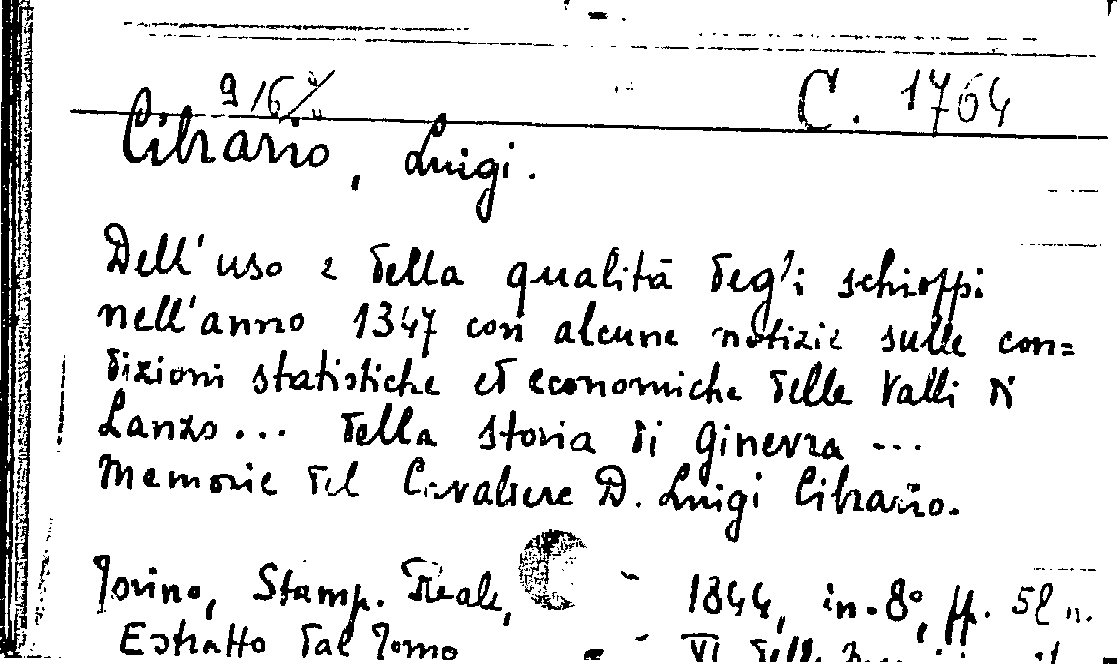 C. 1764
Cibrario, Luigi.
Dell'uso e della qualità degl'i schioppi
nell'anno 1347 con alcune notizie sulle con=
dizioni statistiche et economiche delle Valli di
Lanzo... della storia di Ginevra ...
Memorie del Cavaliere D. Luigi Cibrario.
Torino, Stamp. Reale, - 1844, in-8°, pp. n.
Estratto dal Tomo - VI delle